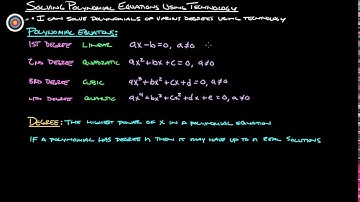 Solving Polynomial Equations Using Technology
• I can solve polynomials of various degrees using technology
Polynomial Equations:
1st Degree Linear ax-b=0, a≠0
2nd Degree Quadratic ax²+bx+c=0, a≠0
3rd Degree Cubic ax³+bx²+cx+d=0, a≠0
4th Degree Quartic ax⁴+bx³+cx²+dx+e=0, a≠0
Degree: The highest power of x in a polynomial equation
If a polynomial has degree n then it may have up to n real solutions